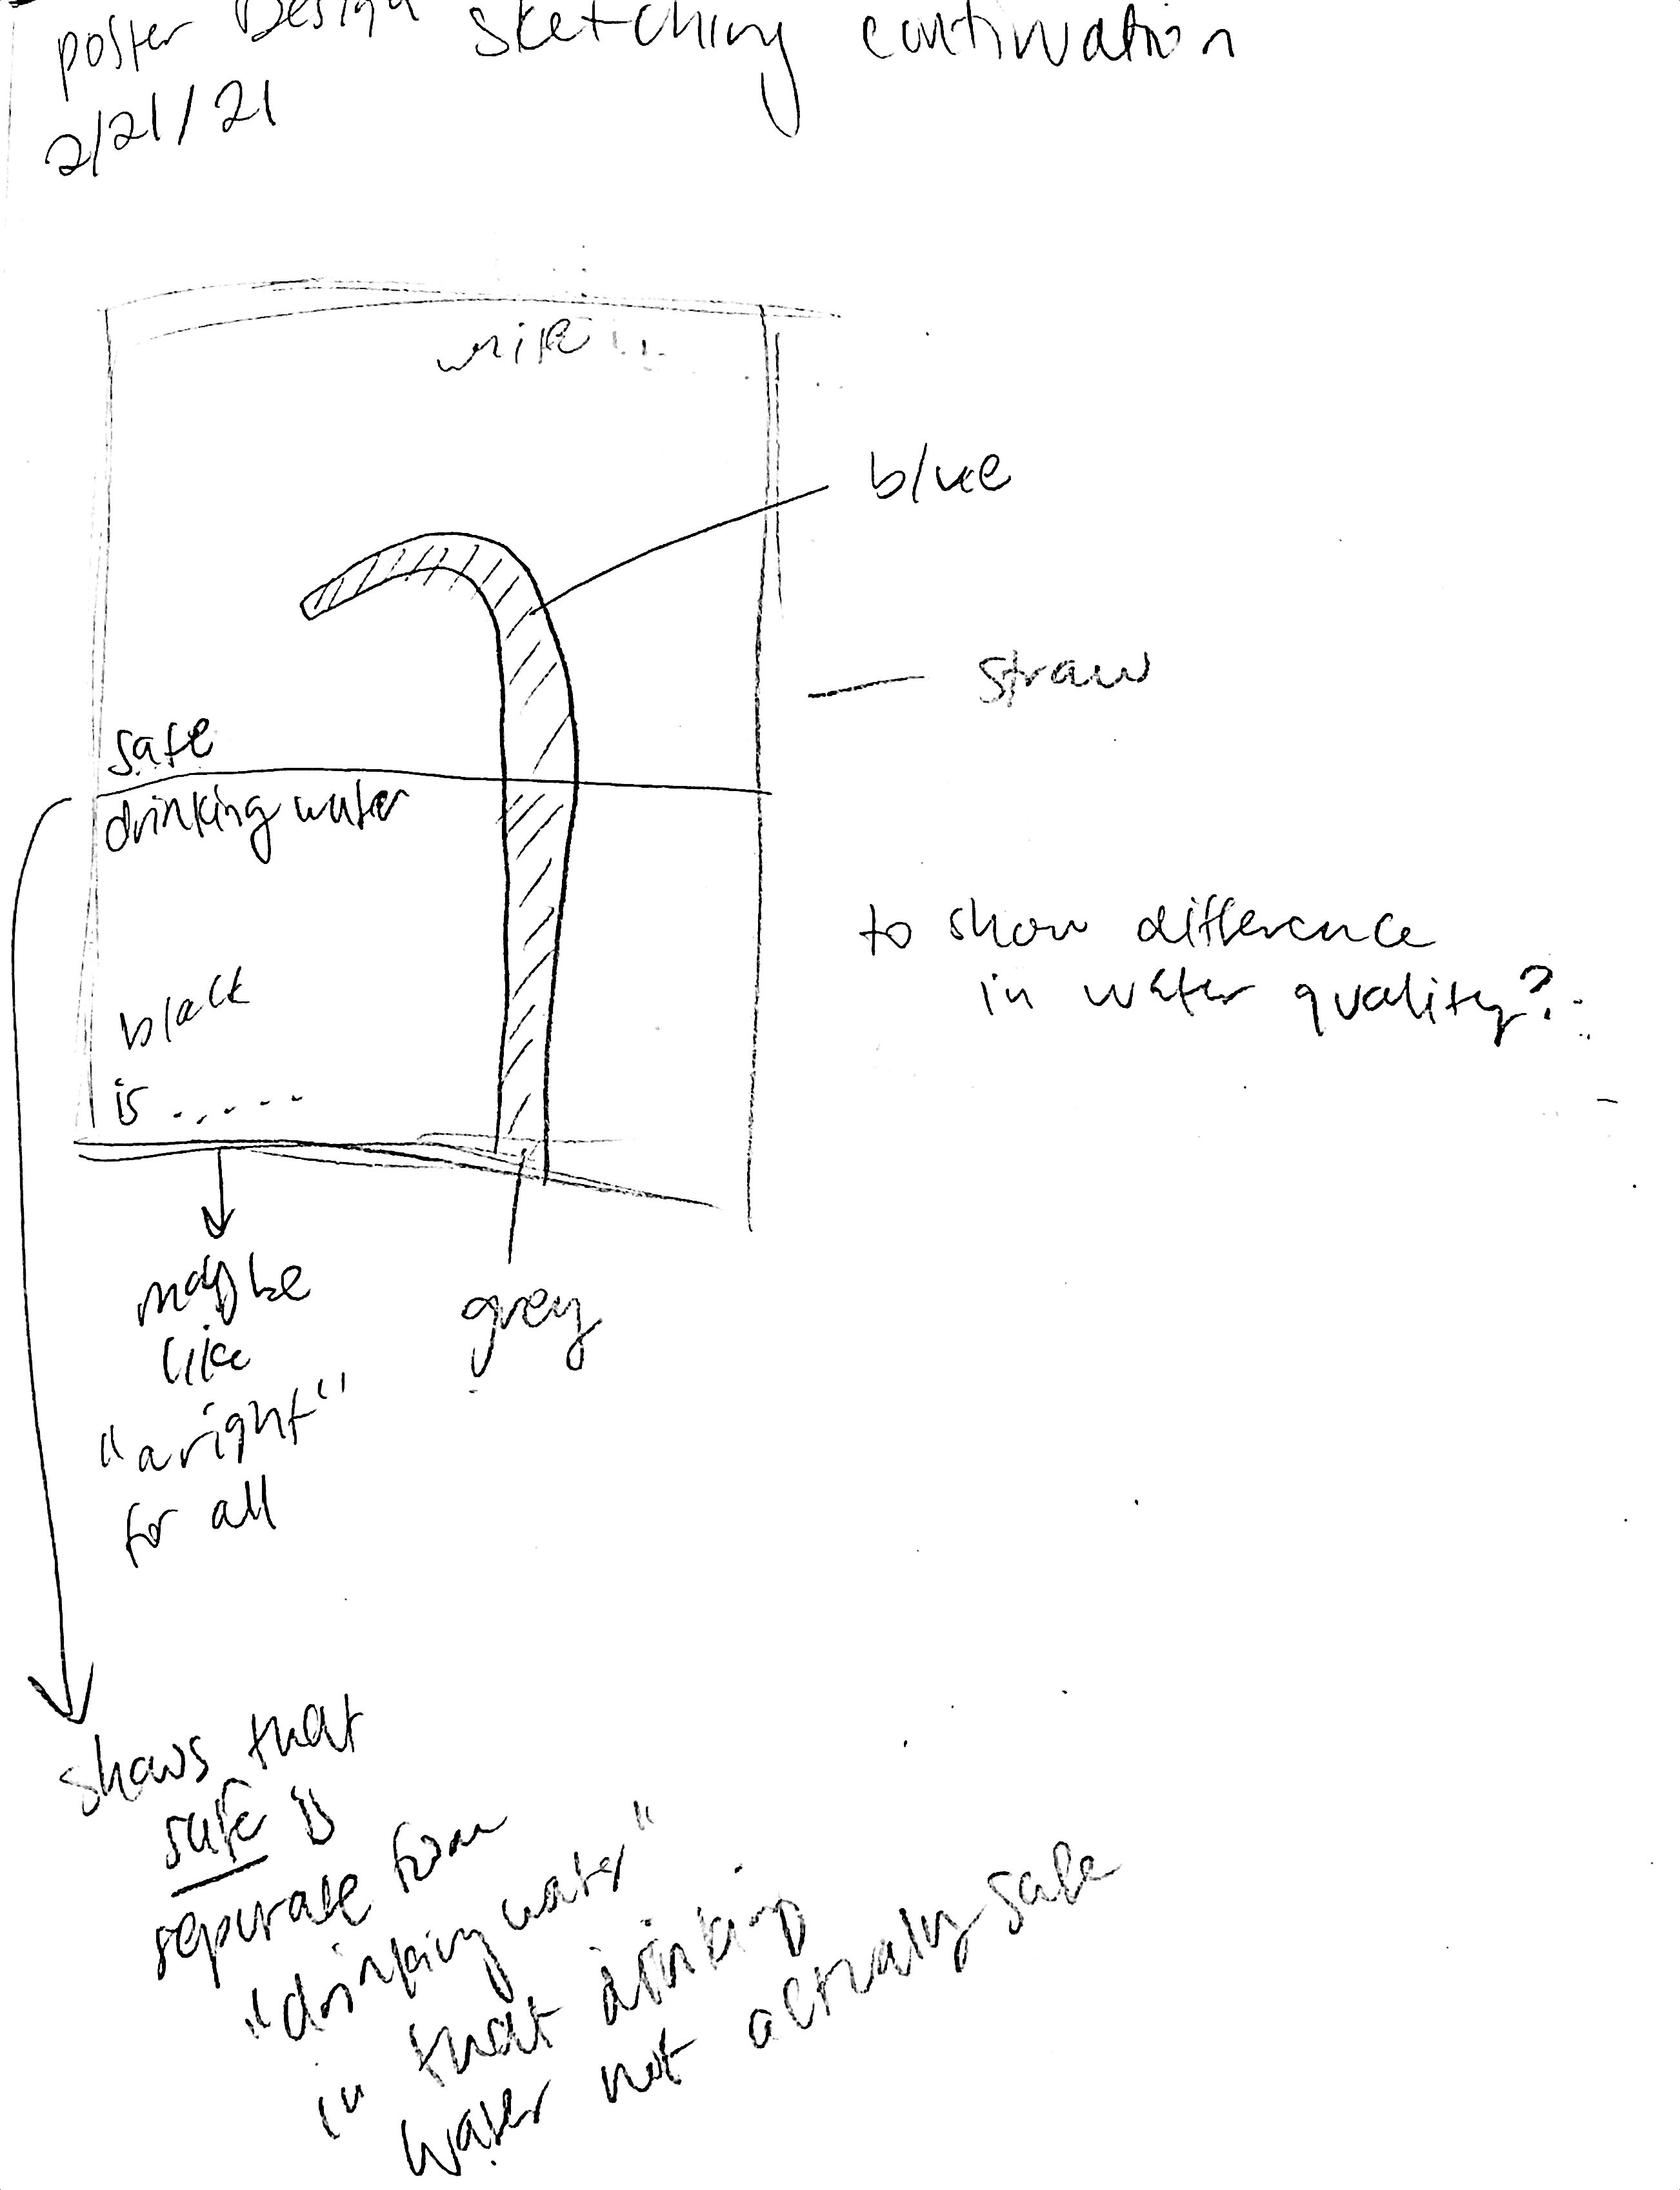 poster Design sketching continuation
2/21/21
white
blue
straw
safe
drinking water
to show difference
in water quality?
black
is .....
maybe
like
"a right"
for all
grey
shows that
safe is
separate from
"drinking water"
in that drinking
water not actually safe